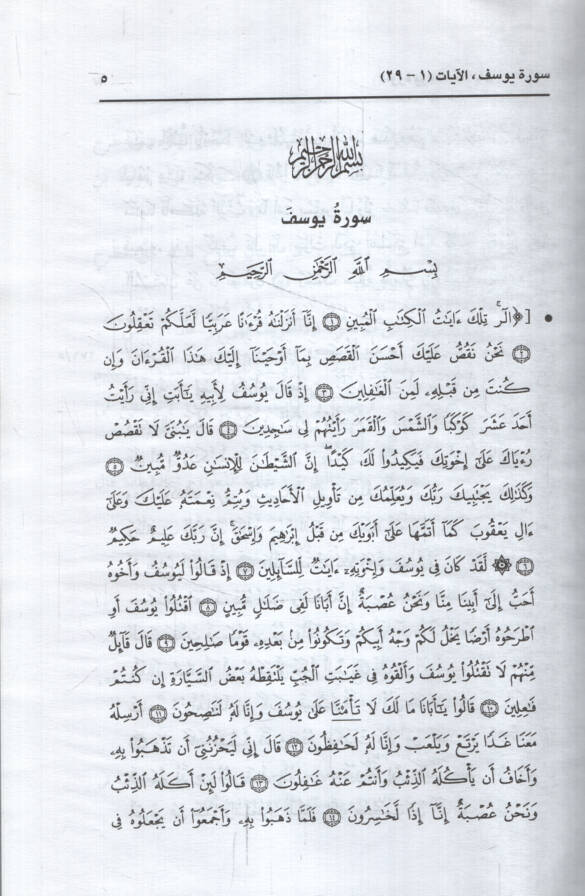 سورة يوسف ، الآيات (١ - ٢٩) ٥
بِسْمِ اللهِ الرَّحْمَنِ الرَّحِيمِ
سورةُ يوسفَ
بِسْمِ اللَّهِ الرَّحْمَٰنِ الرَّحِيمِ
• [﴿الٓرۚ تِلْكَ ءَايَٰتُ الْكِتَٰبِ الْمُبِينِ ١ إِنَّآ أَنزَلْنَٰهُ قُرْءَٰنًا عَرَبِيًّا لَّعَلَّكُمْ تَعْقِلُونَ
٢ نَحْنُ نَقُصُّ عَلَيْكَ أَحْسَنَ الْقَصَصِ بِمَآ أَوْحَيْنَآ إِلَيْكَ هَٰذَا الْقُرْءَانَ وَإِن
كُنتَ مِن قَبْلِهِۦ لَمِنَ الْغَٰفِلِينَ ٣ إِذْ قَالَ يُوسُفُ لِأَبِيهِ يَٰٓأَبَتِ إِنِّي رَأَيْتُ
أَحَدَ عَشَرَ كَوْكَبًا وَالشَّمْسَ وَالْقَمَرَ رَأَيْتُهُمْ لِي سَٰجِدِينَ ٤ قَالَ يَٰبُنَيَّ لَا تَقْصُصْ
رُءْيَاكَ عَلَىٰٓ إِخْوَتِكَ فَيَكِيدُوا لَكَ كَيْدًاۖ إِنَّ الشَّيْطَٰنَ لِلْإِنسَٰنِ عَدُوٌّ مُّبِينٌ ٥
وَكَذَٰلِكَ يَجْتَبِيكَ رَبُّكَ وَيُعَلِّمُكَ مِن تَأْوِيلِ الْأَحَادِيثِ وَيُتِمُّ نِعْمَتَهُۥ عَلَيْكَ وَعَلَىٰٓ
ءَالِ يَعْقُوبَ كَمَآ أَتَمَّهَا عَلَىٰٓ أَبَوَيْكَ مِن قَبْلُ إِبْرَٰهِيمَ وَإِسْحَٰقَۚ إِنَّ رَبَّكَ عَلِيمٌ حَكِيمٌ
٦ ۞ لَّقَدْ كَانَ فِي يُوسُفَ وَإِخْوَتِهِۦٓ ءَايَٰتٌ لِّلسَّآئِلِينَ ٧ إِذْ قَالُوا لَيُوسُفُ وَأَخُوهُ
أَحَبُّ إِلَىٰٓ أَبِينَا مِنَّا وَنَحْنُ عُصْبَةٌ إِنَّ أَبَانَا لَفِي ضَلَٰلٍ مُّبِينٍ ٨ اقْتُلُوا يُوسُفَ أَوِ
اطْرَحُوهُ أَرْضًا يَخْلُ لَكُمْ وَجْهُ أَبِيكُمْ وَتَكُونُوا مِنۢ بَعْدِهِۦ قَوْمًا صَٰلِحِينَ ٩ قَالَ قَآئِلٌ
مِّنْهُمْ لَا تَقْتُلُوا يُوسُفَ وَأَلْقُوهُ فِي غَيَٰبَتِ الْجُبِّ يَلْتَقِطْهُ بَعْضُ السَّيَّارَةِ إِن كُنتُمْ
فَٰعِلِينَ ١٠ قَالُوا يَٰٓأَبَانَا مَا لَكَ لَا تَأْمَ۫نَّا عَلَىٰ يُوسُفَ وَإِنَّا لَهُۥ لَنَٰصِحُونَ ١١ أَرْسِلْهُ
مَعَنَا غَدًا يَرْتَعْ وَيَلْعَبْ وَإِنَّا لَهُۥ لَحَٰفِظُونَ ١٢ قَالَ إِنِّي لَيَحْزُنُنِيٓ أَن تَذْهَبُوا بِهِۦ
وَأَخَافُ أَن يَأْكُلَهُ الذِّئْبُ وَأَنتُمْ عَنْهُ غَٰفِلُونَ ١٣ قَالُوا لَئِنْ أَكَلَهُ الذِّئْبُ
وَنَحْنُ عُصْبَةٌ إِنَّآ إِذًا لَّخَٰسِرُونَ ١٤ فَلَمَّا ذَهَبُوا بِهِۦ وَأَجْمَعُوٓا أَن يَجْعَلُوهُ فِي